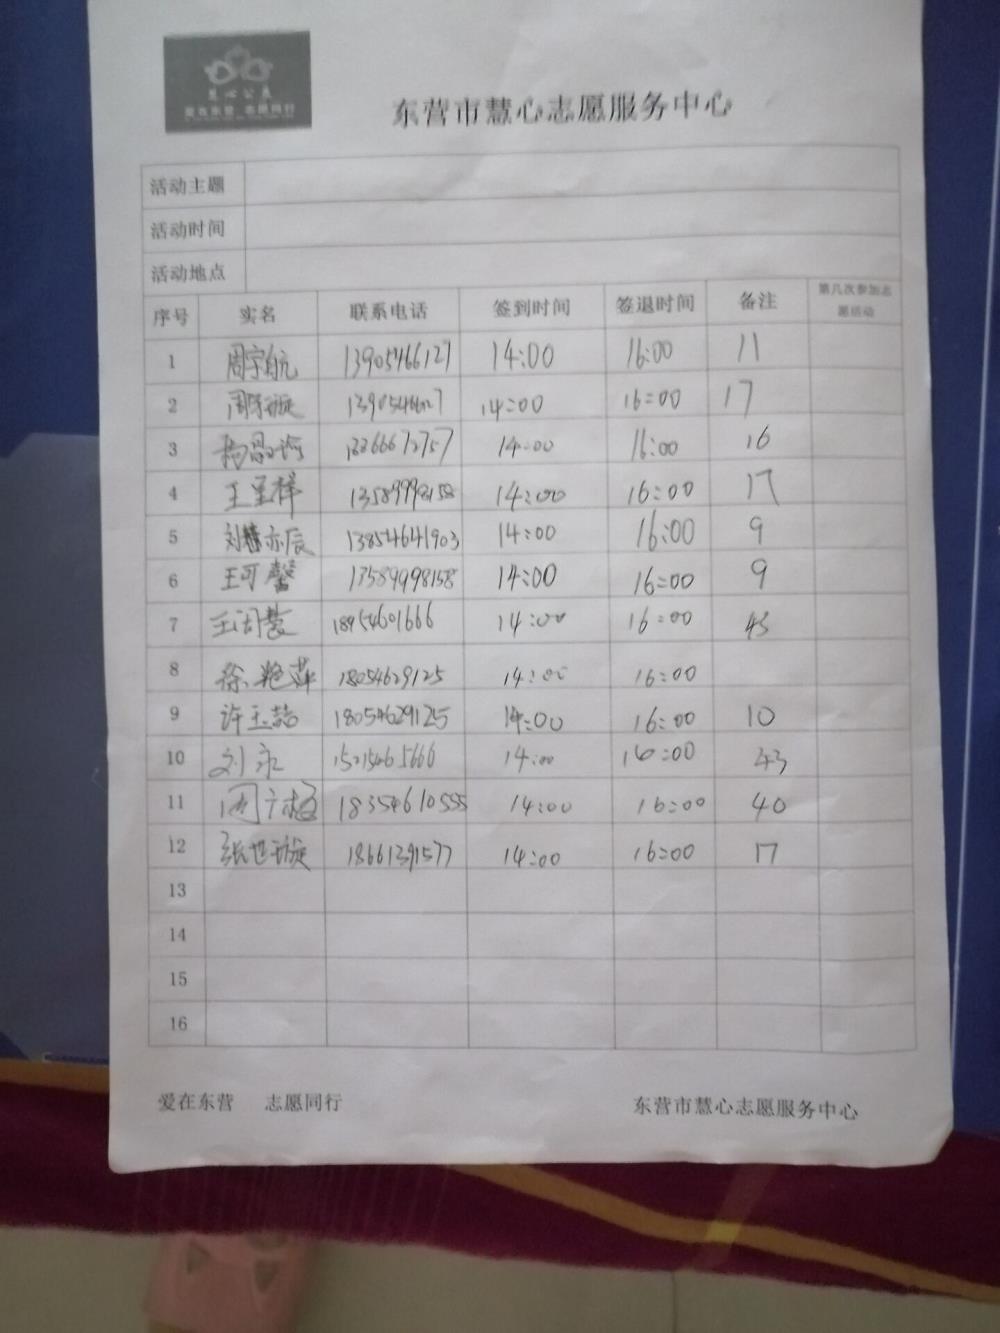 慧心公益
爱在东营 志愿同行
东营市慧心志愿服务中心
活动主题
活动时间
活动地点
序号 实名 联系电话 签到时间 签退时间 备注 第几次参加志愿活动
1 周宇航 13905466127 14:00 16:00 11
2 14:00 16:00 17
3 14:00 16:00 16
4 13589998158 14:00 16:00 17
5 刘亦辰 13854641903 14:00 16:00 9
6 王可馨 13589998158 14:00 16:00 9
7 18954601666 14:00 16:00 43
8 徐艳萍 18054629125 14:00 16:00
9 许玉喆 18054629125 14:00 16:00 10
10 刘永 14:00 16:00 43
11 18354610555 14:00 16:00 40
12 张世璇 18661391577 14:00 16:00 17
13
14
15
16
爱在东营 志愿同行 东营市慧心志愿服务中心